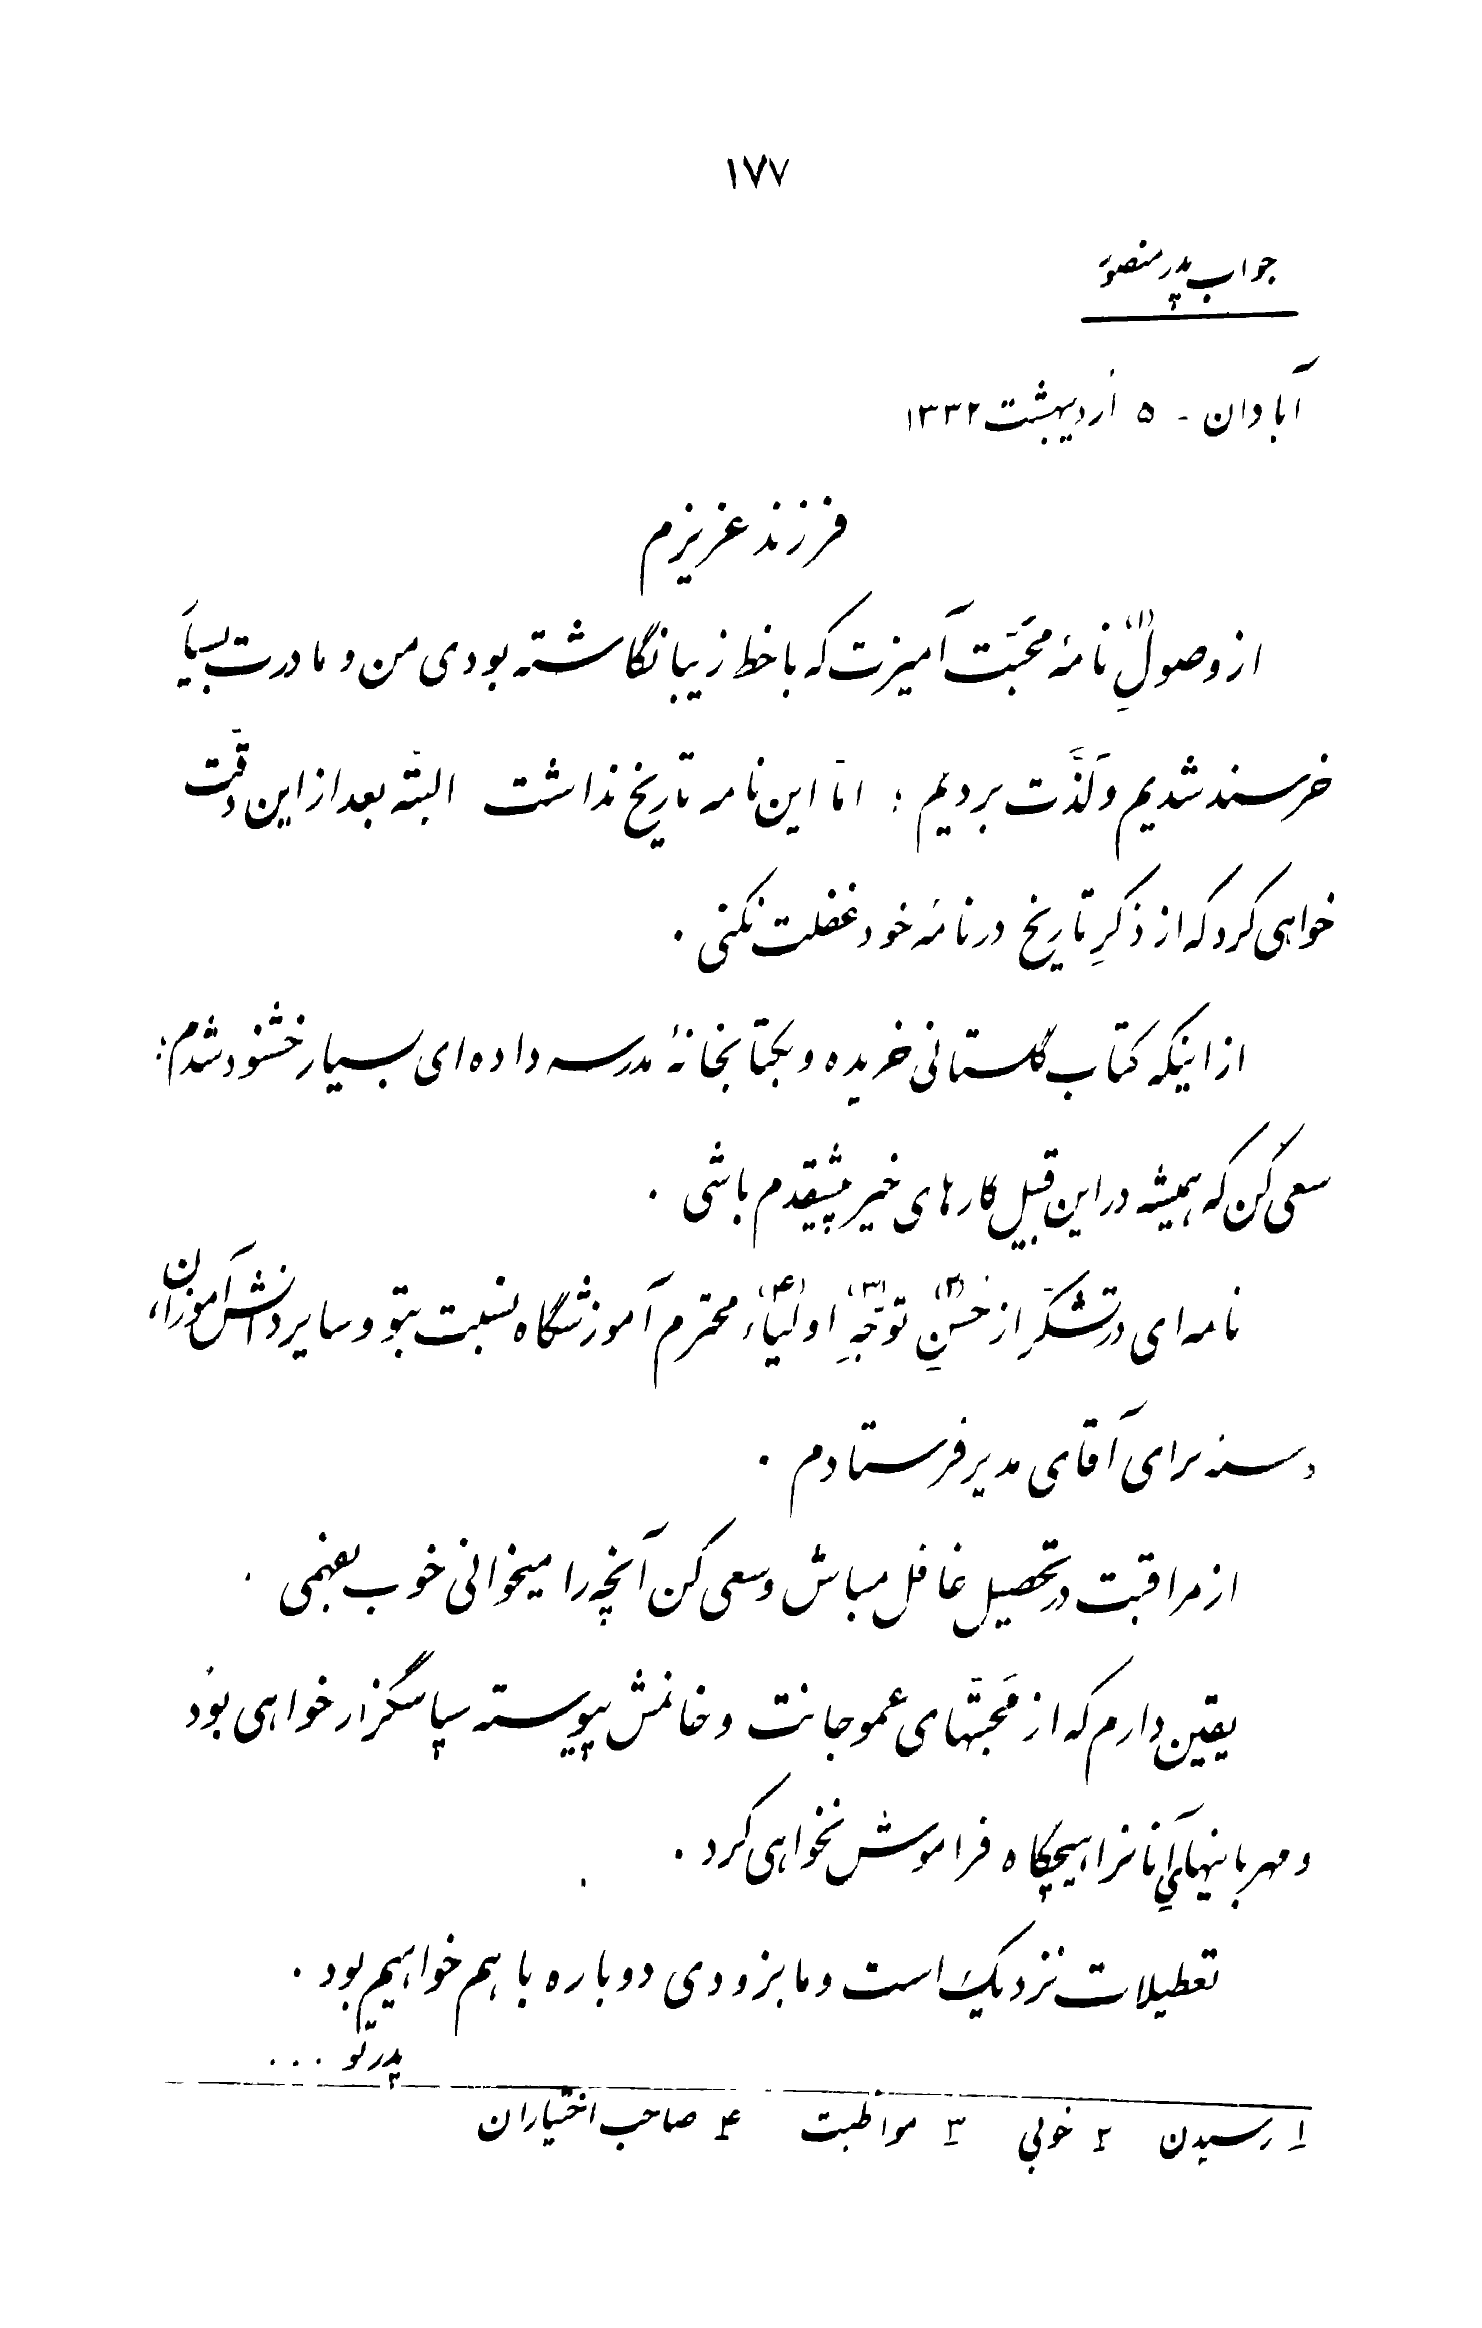 ۱۷۷
جواب پدر منصور
آبادان - ۵ اردیبهشت ۱۳۳۲
فرزند عزیزم
از وصولِ (۱) نامهٔ محَبَّت آمیزت که با خط زیبا نگاشته بودی من و مادرت بسیا
خرسند شدیم و لَذَّت بردیم ؛ امّا این نامه تاریخ نداشت البتّه بعد از این دقَّت
خواهی کرد که از ذکرِ تاریخ در نامهٔ خود غفلت نکنی .
از اینکه کتاب گلستانی خریده و بکتابخانهٔ مدرسه داده‌ای بسیار خشنود شدم ؛
سعی کُن که همیشه در این قبیل کارهای خیر پیشقدم باشی .
نامه‌ای در تشکّر از حُسنِ (۲) توجّهِ (۳) اولیاء (۴) محترم آموزشگاه نسبت بتو و سایر دانش‌آموزان ،
برای آقای مدیر فرستادم .
از مراقبت در تحصیل غافل مباش و سعی کن آنچه را میخوانی خوب بفهمی .
یقین دارم که از مَحَبَّتهای عمو جانت و خانمش پیوسته سپاسگزار خواهی بود
و مهربانیهای آنانرا هیچگاه فراموش نخواهی کرد .
تعطیلات نزدیک است و ما بزودی دوباره با هم خواهیم بود .
پدر تو ...
۱ رسیدن ۲ خوبی ۳ مواظبت ۴ صاحب اختیاران